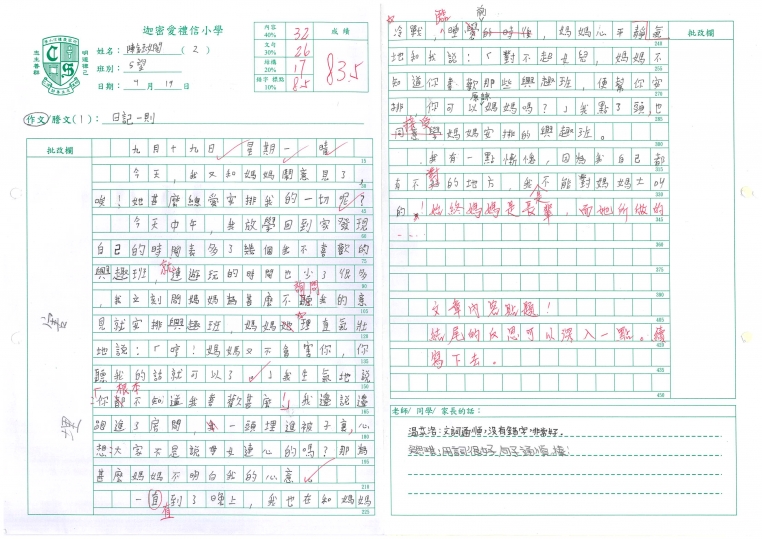 迦密愛禮信小學
姓名：
( 2 )
班別：5望
日期：9 月 19 日
內容 40% 32
文句 30% 26
結構 20% 17
錯字 標點 10% 8.5
成績
83.5
作文/謄文(1)：日記一則
批改欄
九月十九日 星期一 晴
今天，我又和媽媽鬧意見了，
唉！她甚麼總愛安排我的一切呢？
今天中午，我放學回到家發現
自己的時間表多了幾個我不喜歡的
興趣班，就連遊玩的時間也少了很多
，我立刻問媽媽為甚麼不詢問我的意
見就安排興趣班，媽媽她理直氣壯
地說：「哼！媽媽又不會害你，你
聽我的話就可以了！」我生氣地說
「你根本都不知道我喜歡甚麼！」我邊說邊
跑進了房間，一頭埋進被子裏，心
想大家不是說母女連心的嗎？那為
甚麼媽媽不明白我的心意？
一直到了晚上，我也在和媽媽
直
冷戰，臨睡前，媽媽心平靜氣
地和我說：「對不起女兒，媽媽不
知道你喜歡那些興趣班，便幫你安
排，你可以原諒媽媽嗎？」我點了頭也
接受媽媽安排的興趣班。
我有一點懊悔，因為我自己都
有不對的地方，我不能對媽媽大叫
的！始終媽媽是長輩，而她所做的
……
文章內容貼題！
結尾的反思可以深入一點。續
寫下去。
批改欄
老師/ 同學/ 家長的話：